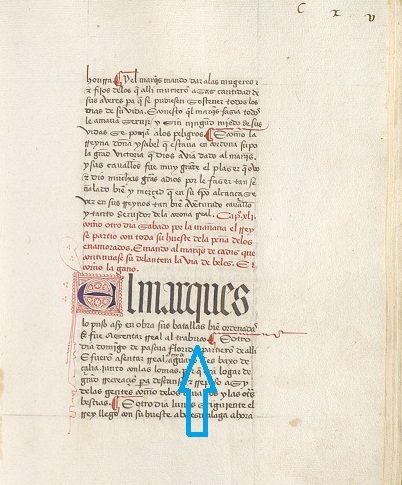 C x v
honrra. Y el marqs mando dar alas mugeres
& fijos delos q alli murierō asas cantidad de
sus averes pa q se pudiesen sostener todos los
dias de su vida. q̄l marqs fasia todos
le amavā servir y sin ningūd miedo de sus
vidas se ponīā alos peligros. Como la
Reyna doña ysabel q estava en cordova supo
la victoria q dios avia dado al marqs,
y sus cavallos fue muy grāde el plaser q ovo
& dio muchas grās a dios por le faser tan se
ñalado biē y merced q en su tpo alcança se
ver en sus Reynos tan biē avēturado cavallo
y tanto servidor dela corona Real. Capº xli
como otro dia sabado por la mañana el Rey
se partio con toda su hueste dela peña delos
enamorados. E mando al marqs de cadis que
continuase su delantera la via de beles. E
como la gano.
El marques
lo puso asy en obra sus batallas biē ordenadas
& fue asentar Real al trabuco. E otro
dia domīgo de pascua florida partierō de alli
E fuerō asentar Real mas baxo de
junto con las lomas. logar de
pa descansar & Reposo
delas gentes como delos cavallos y las otrs
bestias. E otro dia lunes siguiente el
Rey llego con su hueste a malaga ahora